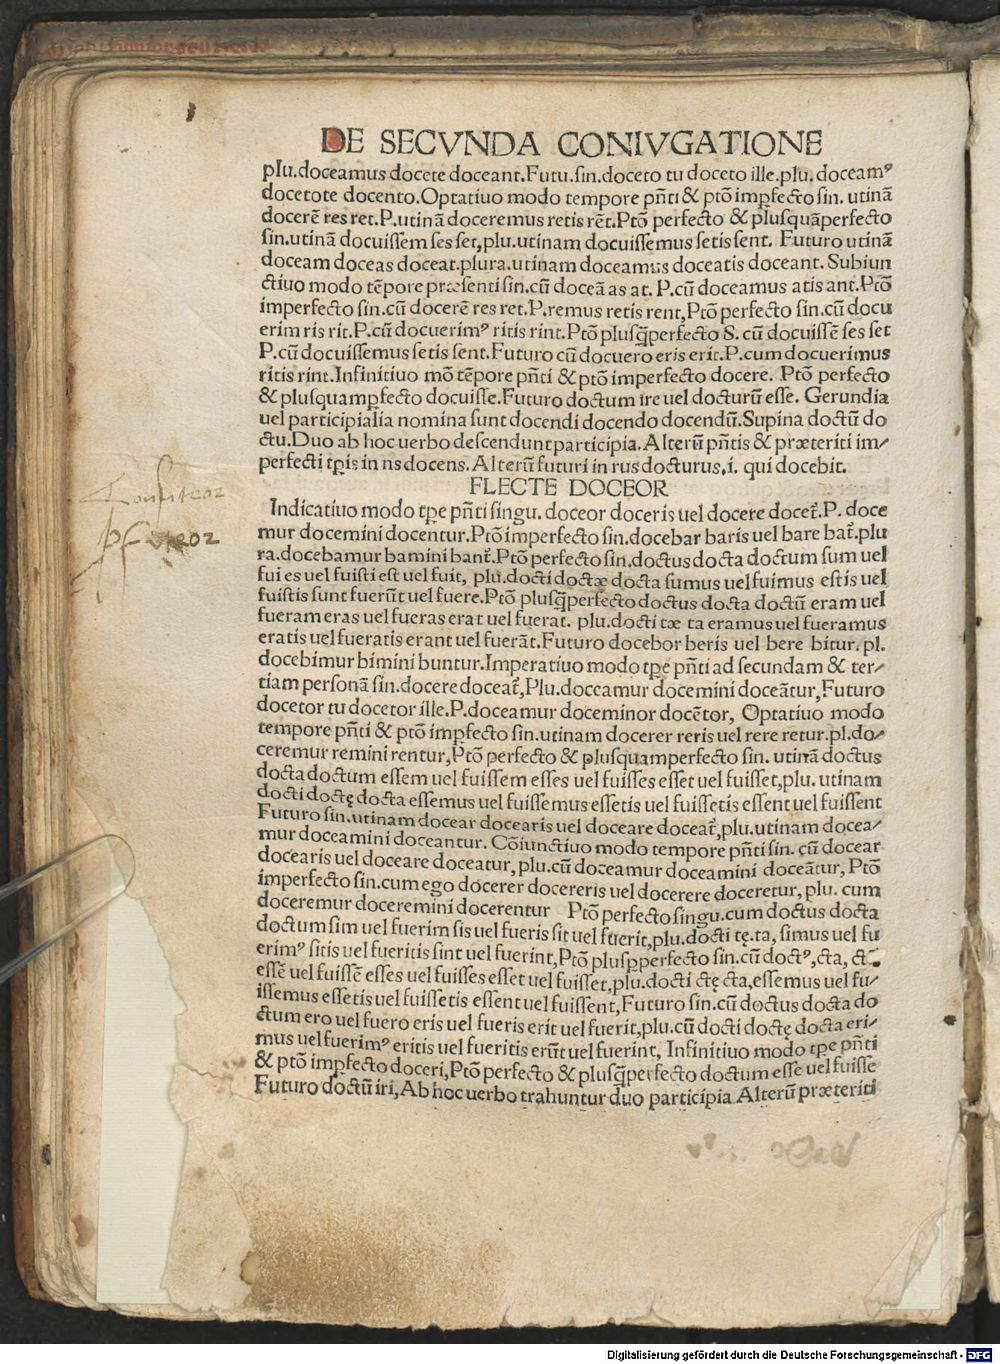 DE SECVNDA CONIVGATIONE
plu.doceamus docete doceant.Futu.sin.doceto tu doceto ille.plu.doceamꝰ
docetote docento.Optatiuo modo tempore pñti & ptõ imꝑfecto sin. utinã
docerẽ res ret.P.utinã doceremus retis rẽt.Ptõ perfecto & plusquãperfecto
sin.utinã docuissem ses set,plu.utinam docuissemus setis sent. Futuro utinã
doceam doceas doceat.plura.utinam doceamus doceatis doceant. Subiun
ctiuo modo tẽpore præsenti sin.cũ doceã as at. P.cũ doceamus atis ant.Ptõ
imperfecto sin.cũ docerẽ res ret.P.remus retis rent,Ptõ perfecto sin.cũ docu
erim ris rit.P.cũ docuerimꝰ ritis rint.Ptõ plusq̃perfecto S. cũ docuissẽ ses set
P.cũ docuissemus setis sent.Futuro cũ docuero eris erit.P.cum docuerimus
ritis rint.Infinitiuo mõ tẽpore pñti & ptõ imperfecto docere. Ptõ perfecto
& plusquamꝑfecto docuisse.Futuro doctum ire uel docturũ esse. Gerundia
uel participialia nomina sunt docendi docendo docendũ.Supina doctũ do
ctu.Duo ab hoc uerbo descendunt participia. Alterũ pñtis & præteriti im/
perfecti tꝑis in ns docens. Alterũ futuri in rus docturus.i. qui docebit.
FLECTE DOCEOR
Confiteor
Indicatiuo modo tꝑe pñti singu. doceor doceris uel docere docet̃. P. doce
mur docemini docentur.Ptõ imperfecto sin.docebar baris uel bare bat̃.plu
ra.docebamur bamini bant̃.Ptõ perfecto sin.doctus docta doctum sum uel
fui es uel fuisti est uel fuit, plu.docti doctæ docta sumus uel fuimus estis uel
fuistis sunt fuerũt uel fuere.Ptõ plusq̃perfecto doctus docta doctũ eram uel
fueram eras uel fueras erat uel fuerat. plu.docti tæ ta eramus uel fueramus
eratis uel fueratis erant uel fuerãt.Futuro docebor beris uel bere bitur. pl.
docebimur bimini buntur.Imperatiuo modo tꝑe pñti ad secundam & ter/
tiam personã sin.docere doceat̃,Plu.doceamur docemini doceãtur,Futuro
docetor tu docetor ille.P.doceamur doceminor docẽtor, Optatiuo modo
tempore pñti & ptõ imꝑfecto sin.utinam docerer reris uel rere retur.pl.do/
ceremur remini rentur,Ptõ perfecto & plusquamperfecto sin. utinã doctus
docta doctum essem uel fuissem esses uel fuisses esset uel fuisset,plu. utinam
docti doctę docta essemus uel fuissemus essetis uel fuissetis essent uel fuissent
Futuro sin.utinam docear docearis uel doceare doceat̃,plu.utinam docea/
mur doceamini doceantur. Cõiunctiuo modo tempore pñti sin. cũ docear
docearis uel doceare doceatur, plu.cũ doceamur doceamini doceãtur, Ptõ
imperfecto sin.cum ego docerer docereris uel docerere doceretur, plu. cum
doceremur doceremini docerentur Ptõ perfecto singu.cum doctus docta
doctum sim uel fuerim sis uel fueris sit uel fuerit,plu.docti tę.ta, simus uel fu
erimꝰ sitis uel fueritis sint uel fuerint,Ptõ plusꝑperfecto sin.cũ doctꝰ,cta, ct̃
essẽ uel fuissẽ esses uel fuisses esset uel fuisset.plu.docti ctę cta,essemus uel fu/
issemus essetis uel fuissetis essent uel fuissent,Futuro sin.cũ doctus docta do
ctum ero uel fuero eris uel fueris erit uel fuerit,plu.cũ docti doctę docta eri/
mus uel fuerimꝰ eritis uel fueritis erũt uel fuerint, Infinitiuo modo tꝑe pñti
& ptõ imꝑfecto doceri,Ptõ perfecto & plusq̃perfecto doctum esse uel fuisse
Futuro doctũ iri,Ab hoc uerbo trahuntur duo participia Alterũ præteriti
Digitalisierung gefördert durch die Deutsche Forschungsgemeinschaft - DFG